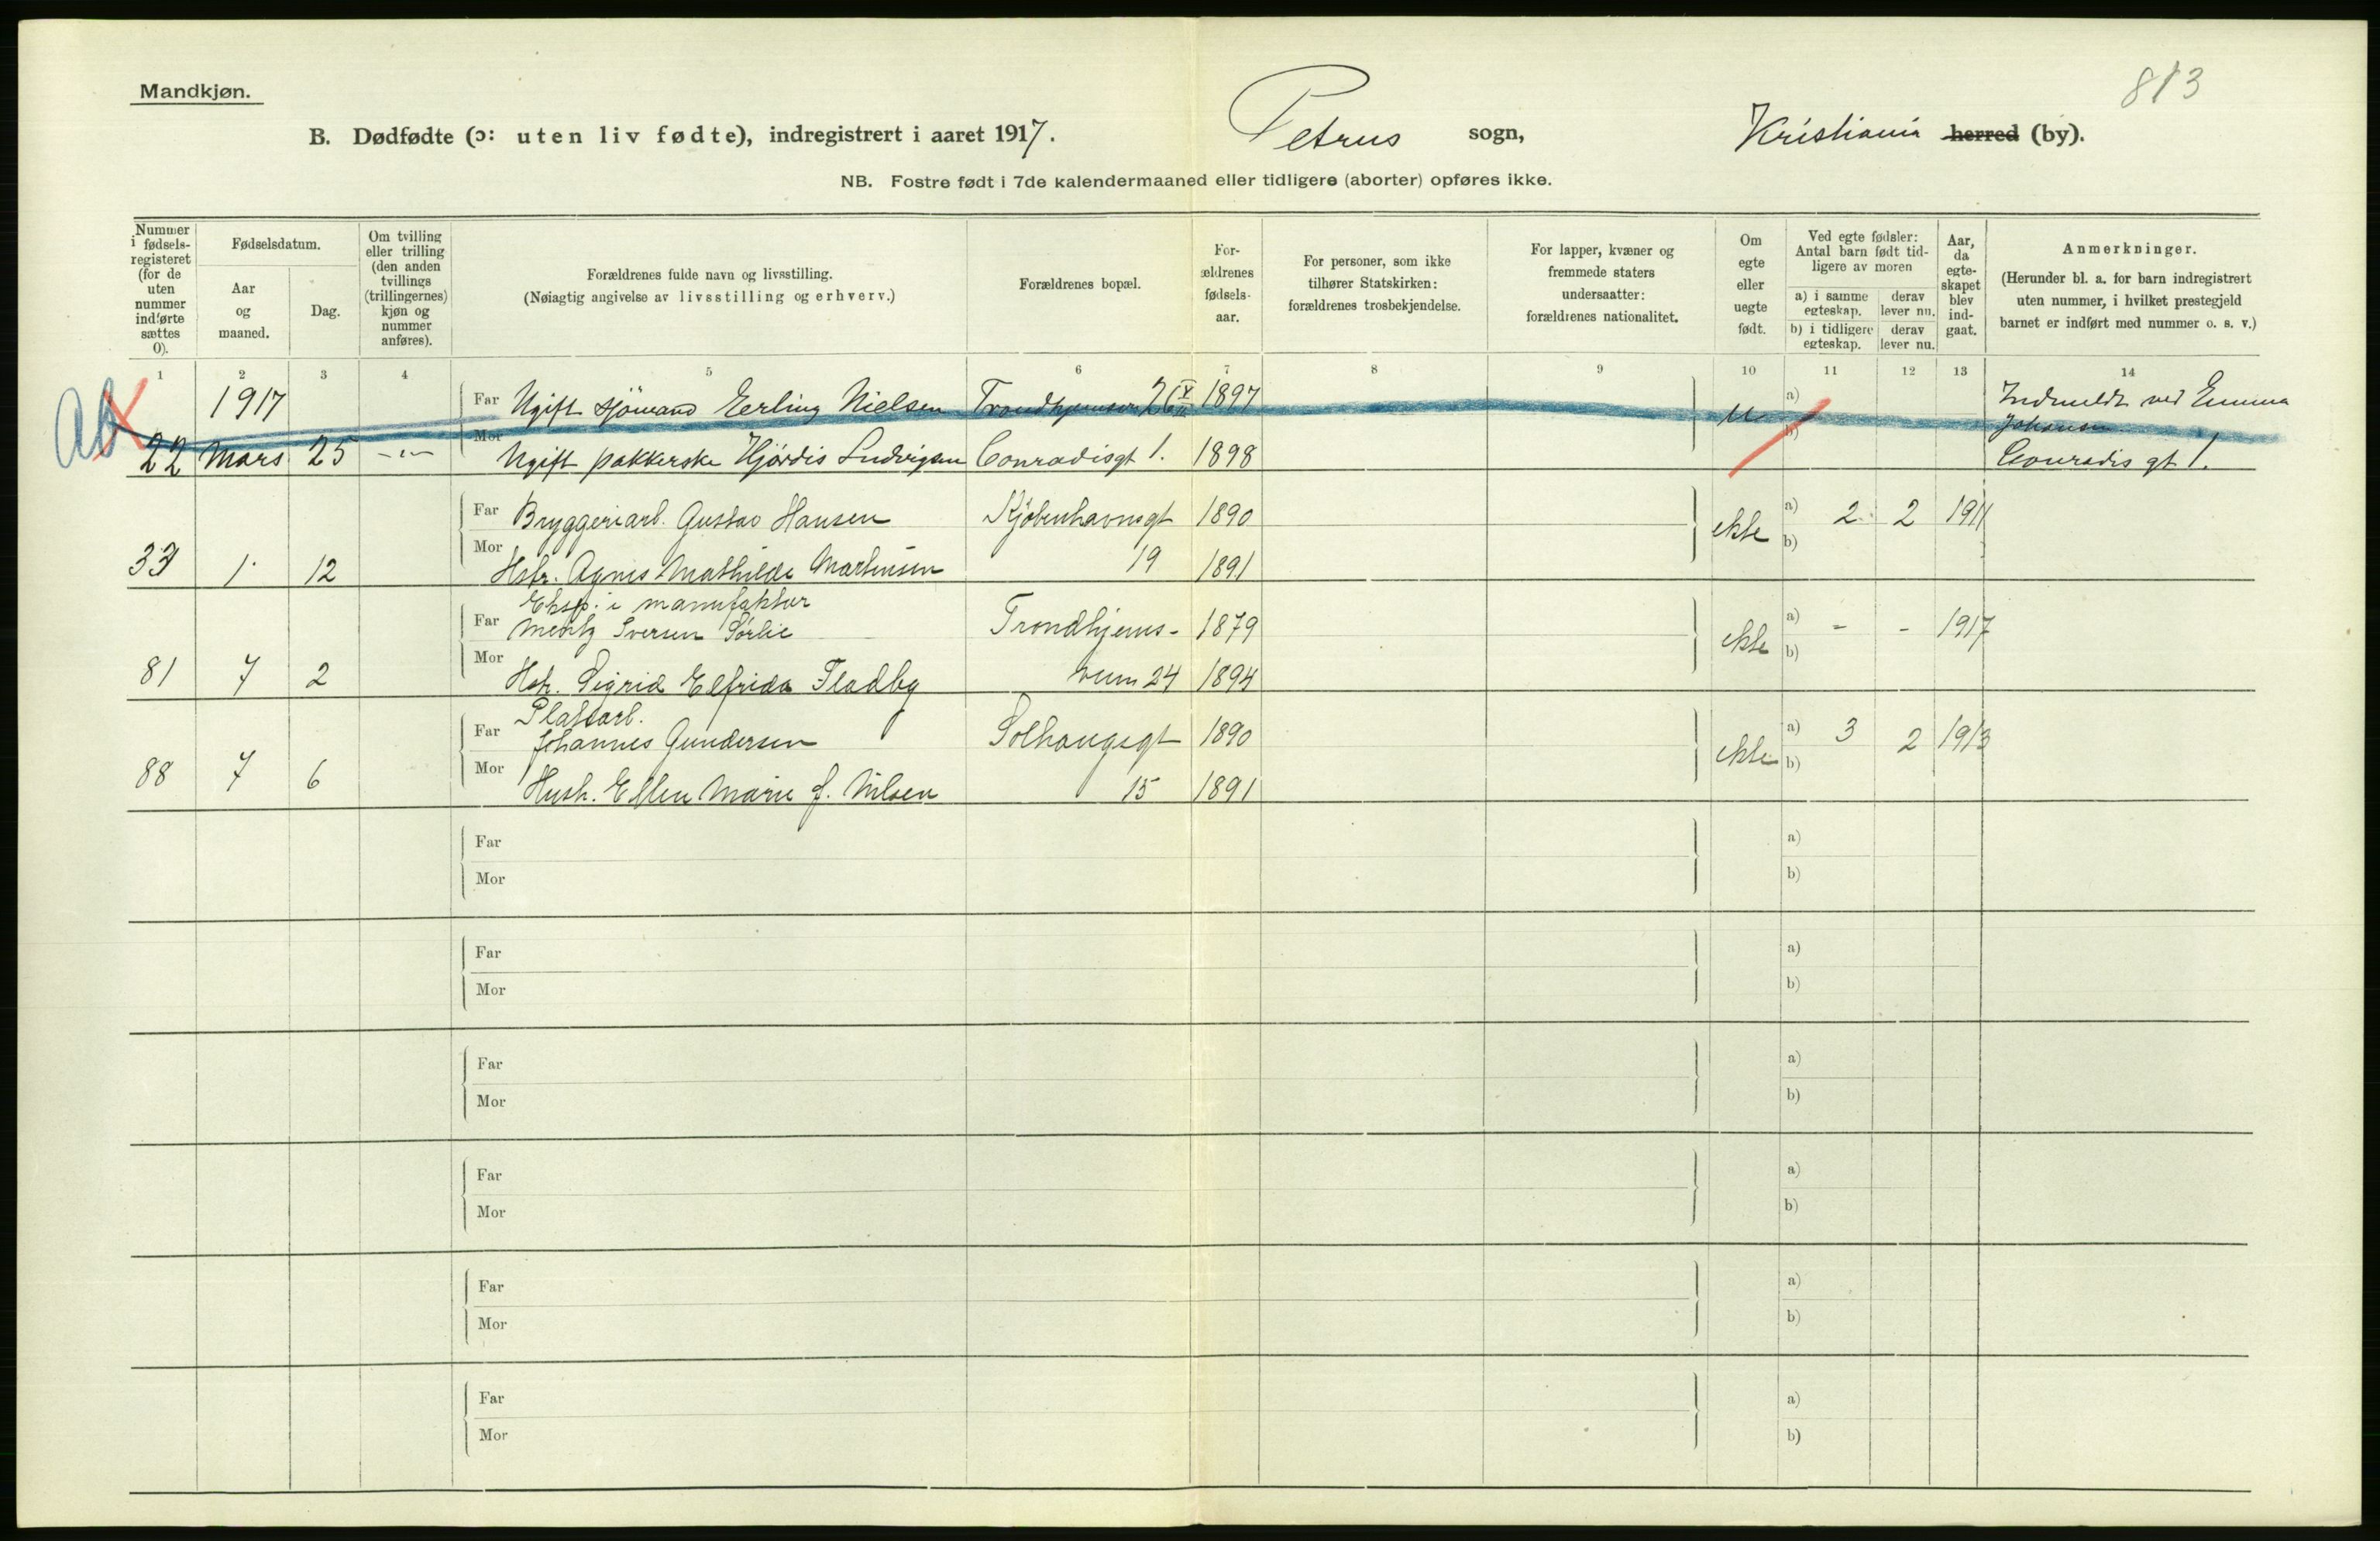 813
Mandkjøn.
B. Dødfødte (ɔ: uten liv fødte), indregistrert i aaret 1917. Petrus sogn, Kristiania herred (by).
NB. Fostre født i 7de kalendermaaned eller tidligere (aborter) opføres ikke.
Nummer i fødsels-registeret (for de uten nummer indførte sættes 0).
Fødselsdatum.
Aar og maaned.
Dag.
Om tvilling eller trilling (den anden tvillings (trillingernes) kjøn og nummer anføres).
Forældrenes fulde navn og livsstilling.
(Nøiagtig angivelse av livsstilling og erhverv.)
Forældrenes bopæl.
For-ældrenes fødsels-aar.
For personer, som ikke tilhører Statskirken: forældrenes trosbekjendelse.
For lapper, kvæner og fremmede staters undersaatter: forældrenes nationalitet.
Om egte eller uegte født.
Ved egte fødsler: Antal barn født tid-ligere av moren
a) i samme egteskap. derav lever nu.
b) i tidligere egteskap. derav lever nu.
Aar, da egte-skapet blev ind-gaat.
Anmerkninger.
(Herunder bl. a. for barn indregistrert uten nummer, i hvilket prestegjeld barnet er indført med nummer o. s. v.)
1 2 3 4 5 6 7 8 9 10 11 12 13 14
Ab
1917 Far Ugift sjömand Eerling Nielsen 26 1897 U a) Indmeldt ved Emma
Johansen
22 Mars 25 Mor Ugift pakkerske Hjördis Ludvigsen Conradisgt 1. 1898 b) Conradis gt 1.
Far Bryggeriarb. Gustav Hansen Kjöbenhavnsgt 1890 ekte a) 2 2 1911
33 1 12 Mor Hstr. Agnes Mathilde Martinsen 19 1891 b)
Eksp. i manufaktur
Far Mentz Iversen Sörlie Trondhjems- 1879 ekte a) - - 1917
81 7 2 Mor Hstr. Sigrid Elfrida Fladby veien 24 1894 b)
Platsarb.
Far Johannes Gundersen Solhaugsgt 1890 ekte a) 3 2 1913
88 7 6 Mor Hustr. Ellen Marie f. Nilsen 15 1891 b)
Far a)
Mor b)
Far a)
Mor b)
Far a)
Mor b)
Far a)
Mor b)
Far a)
Mor b)
Far a)
Mor b)